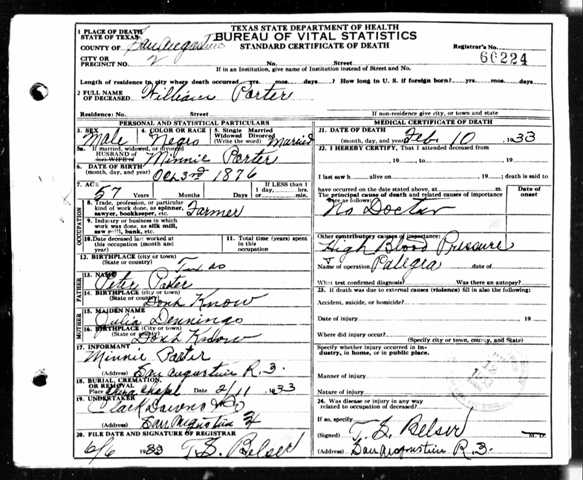 TEXAS STATE DEPARTMENT OF HEALTH
BUREAU OF VITAL STATISTICS
STANDARD CERTIFICATE OF DEATH
1 PLACE OF DEATH
STATE OF TEXAS
COUNTY OF San Augustine
CITY OR
PRECINCT NO. 2 No. Street
Registrar's No.
66224
If in an Institution, give name of Institution instead of Street and No.
Length of residence in city where death occurred yrs. mos. days? How long in U. S. if foreign born? yrs. mos. days
2 FULL NAME
OF DECEASED William Porter
Residence: No. Street
If non-residence give city, or town and state
PERSONAL AND STATISTICAL PARTICULARS
3. SEX Male
4 COLOR OR RACE Negro
5 Single Married
Widowed Divorced
(Write the word) Married
5a. If married, widowed, or divorced
HUSBAND OF
(or) WIFE OF Minnie Porter
6. DATE OF BIRTH
(month, day, and year) Oct 3rd 1876
7. AGE 57 Years Months Days
If LESS than 1
1 day, hrs.
or min.
OCCUPATION
8. Trade, profession, or particular
kind of work done, as spinner,
sawyer, bookkeeper, etc. Farmer
9. Industry or business in which
work was done, as silk mill,
saw mill, bank, etc.
10. Date deceased last worked at
this occupation (month and
year)
11. Total time (years) spent
in this
occupation
12. BIRTHPLACE (city or town)
(State or country) Texas
FATHER
13. NAME Peter Porter
14. BIRTHPLACE (City or town)
(State or country) Dont Know
MOTHER
15. MAIDEN NAME Julia Dennings
16. BIRTHPLACE (City or town)
(State or country) Dont Know
17. INFORMANT Minnie Porter
(Address) San Augustine R. 3.
18. BURIAL, CREMATION,
OR REMOVAL
Place Chapel Date 2/11 1933
19. UNDERTAKER
Clark Downs
(Address) San Augustine
20. FILE DATE AND SIGNATURE OF REGISTRAR
6/6 1933 T. S. Belser
MEDICAL CERTIFICATE OF DEATH
21. DATE OF DEATH
(month, day, and year) Feb 10 1933
22. I HEREBY CERTIFY, That I attended deceased
from , 19 to , 19
I last saw h alive on , 19 ; death is said to
have occurred on the date stated above, at m.
The principal cause of death and related causes of importance
were as follows:
Date of
onset
No Doctor
Other contributory causes of importance:
High Blood Pressure
Name of operation date of
What test confirmed diagnosis? Was there an autopsy?
23. If death was due to external causes (violence) fill in also the following:
Accident, suicide, or homicide?
Date of injury 19
Where did injury occur?
(Specify city or town, county, and State)
Specify whether injury occurred in industry, in home, or in public place.
Manner of injury
Nature of injury
24. Was disease or injury in any way
related to occupation of deceased?
If so, specify
(Signed) T. S. Belser M. D.
(Address) San Augustine R. 3.